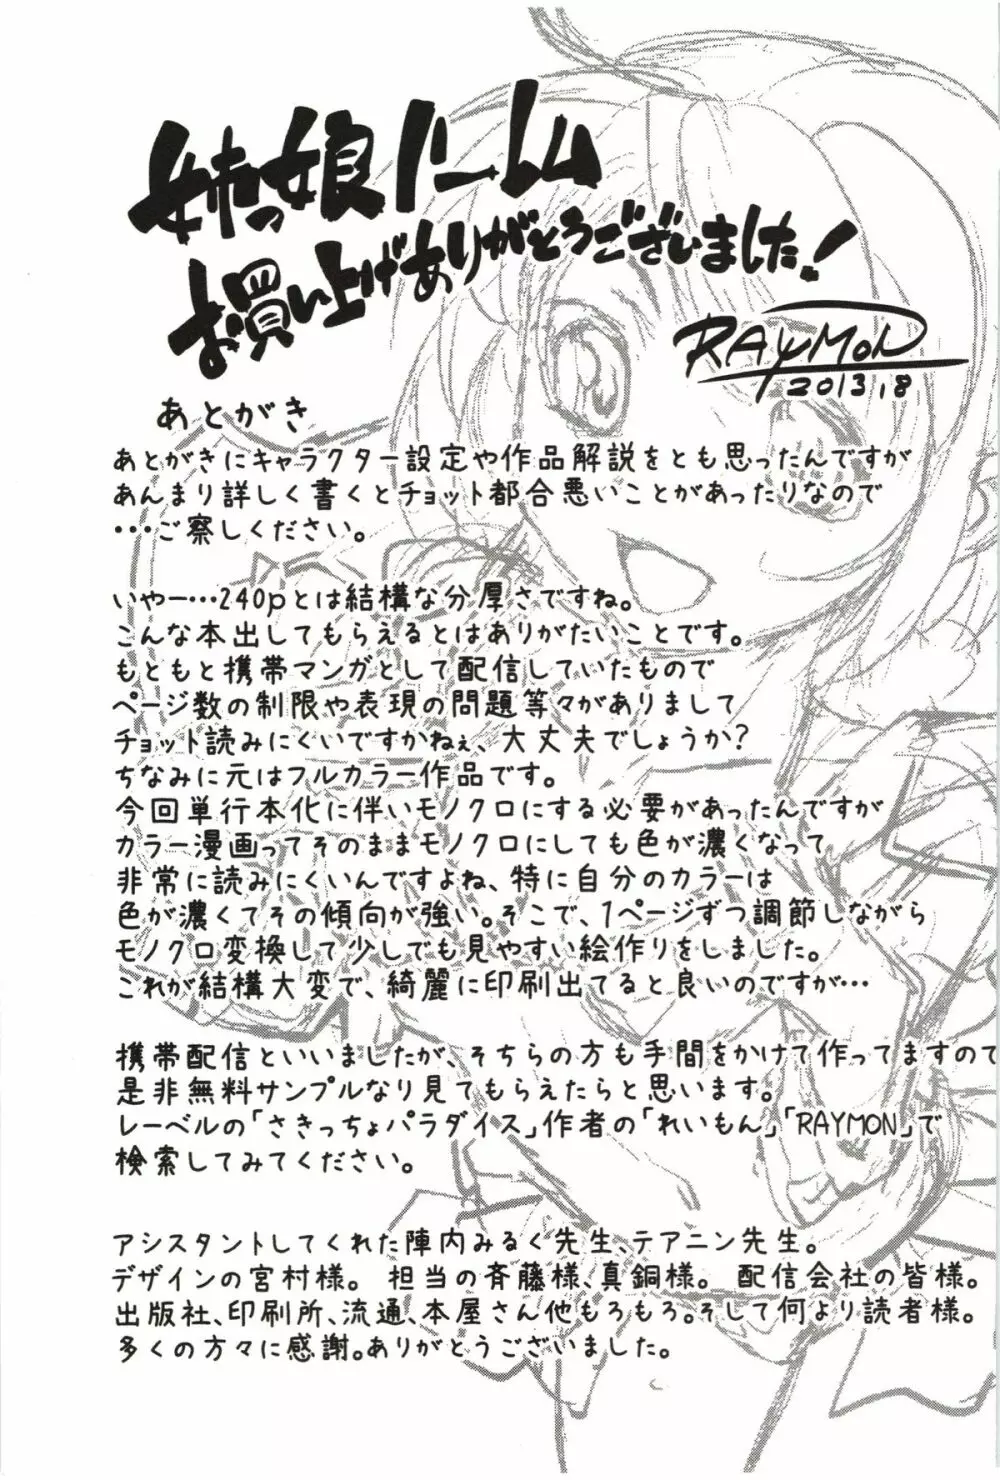 姉っ娘ハーレム
お買い上げありがとうございました!
RAYMON
2013,8
あとがき
あとがきにキャラクター設定や作品解説をとも思ったんですが
あんまり詳しく書くとチョット都合悪いことがあったりなので
・・・ご察しください。
いやー・・・240pとは結構な分厚さですね。
こんな本出してもらえるとはありがたいことです。
もともと携帯マンガとして配信していたもので
ページ数の制限や表現の問題等々がありまして
チョット読みにくいですかねぇ、大丈夫でしょうか?
ちなみに元はフルカラー作品です。
今回単行本化に伴いモノクロにする必要があったんですが
カラー漫画ってそのままモノクロにしても色が濃くなって
非常に読みにくいんですよね、特に自分のカラーは
色が濃くてその傾向が強い。そこで、1ページずつ調節しながら
モノクロ変換して少しでも見やすい絵作りをしました。
これが結構大変で、綺麗に印刷出てると良いのですが・・・
携帯配信といいましたが、そちらの方も手間をかけて作ってますので
是非無料サンプルなり見てもらえたらと思います。
レーベルの「さきっちょパラダイス」作者の「れいもん」「RAYMON」で
検索してみてください。
アシスタントしてくれた陣内みるく先生、テアニン先生。
デザインの宮村様。 担当の斉藤様、真銅様。 配信会社の皆様。
出版社、印刷所、流通、本屋さん他もろもろ。そして何より読者様。
多くの方々に感謝。ありがとうございました。